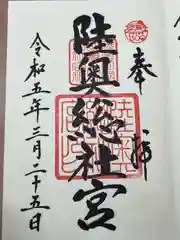 奉拝
陸奥総社宮
令和五年三月二十五日